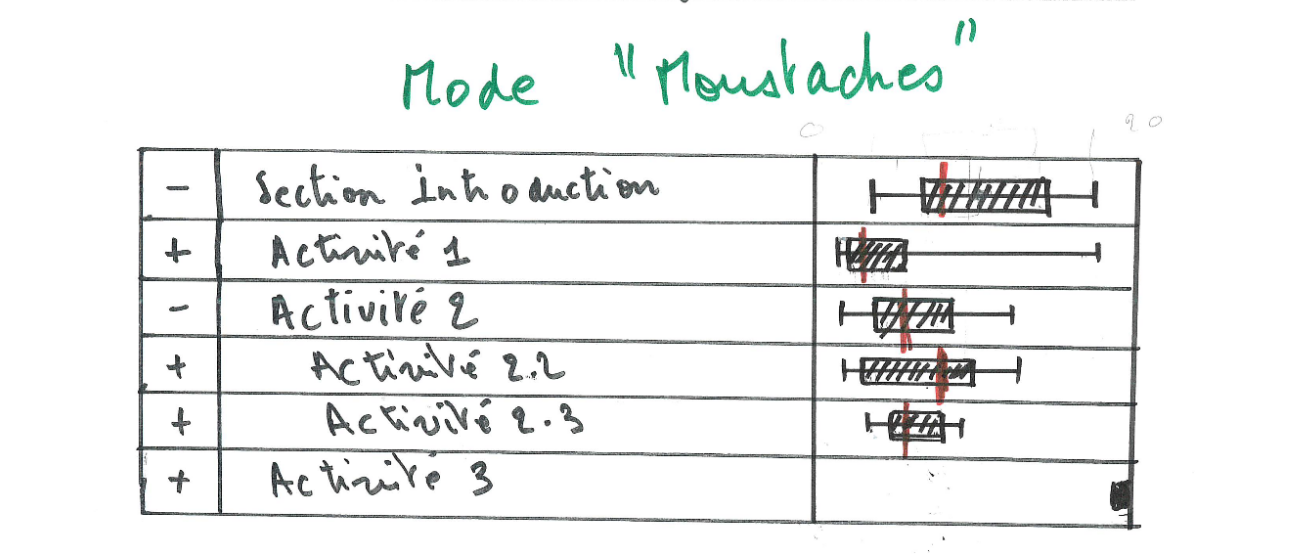 Mode "Moustaches"
0 20
- Section introduction
+ Activité 1
- Activité 2
+ Activité 2.2
+ Activité 2.3
+ Activité 3